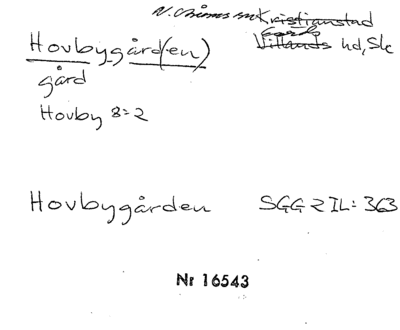 N. Åsums sn Kristianstad
Hovbygård(en)
Villands hd, Sk
gård
Hovby 8:2
Hovbygården SGG 2 IL: 363
Nr 16543